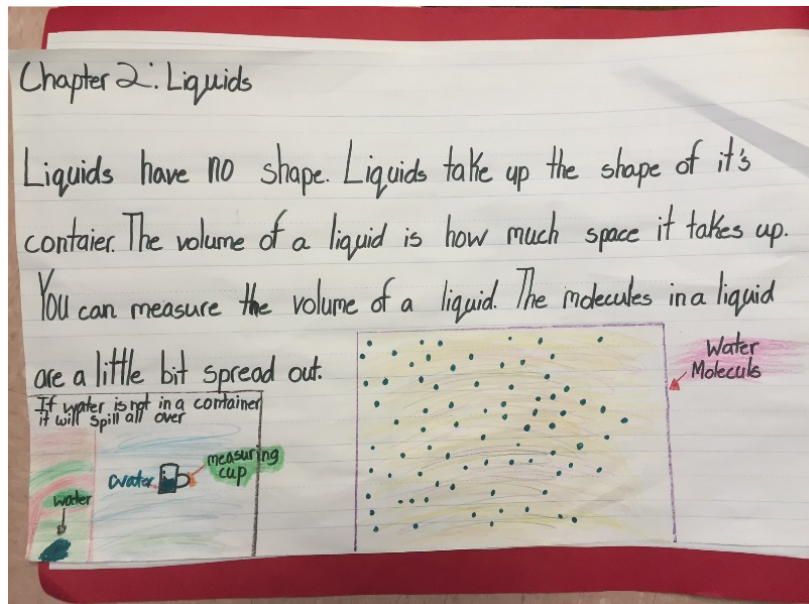 Chapter 2: Liquids
Liquids have no shape. Liquids take up the shape of it's
contaier. The volume of a liquid is how much space it takes up.
You can measure the volume of a liquid. The molecules in a liquid
are a little bit spread out.
If water is not in a container
it will spill all over
water
water
measuring
cup
Water
Moleculs